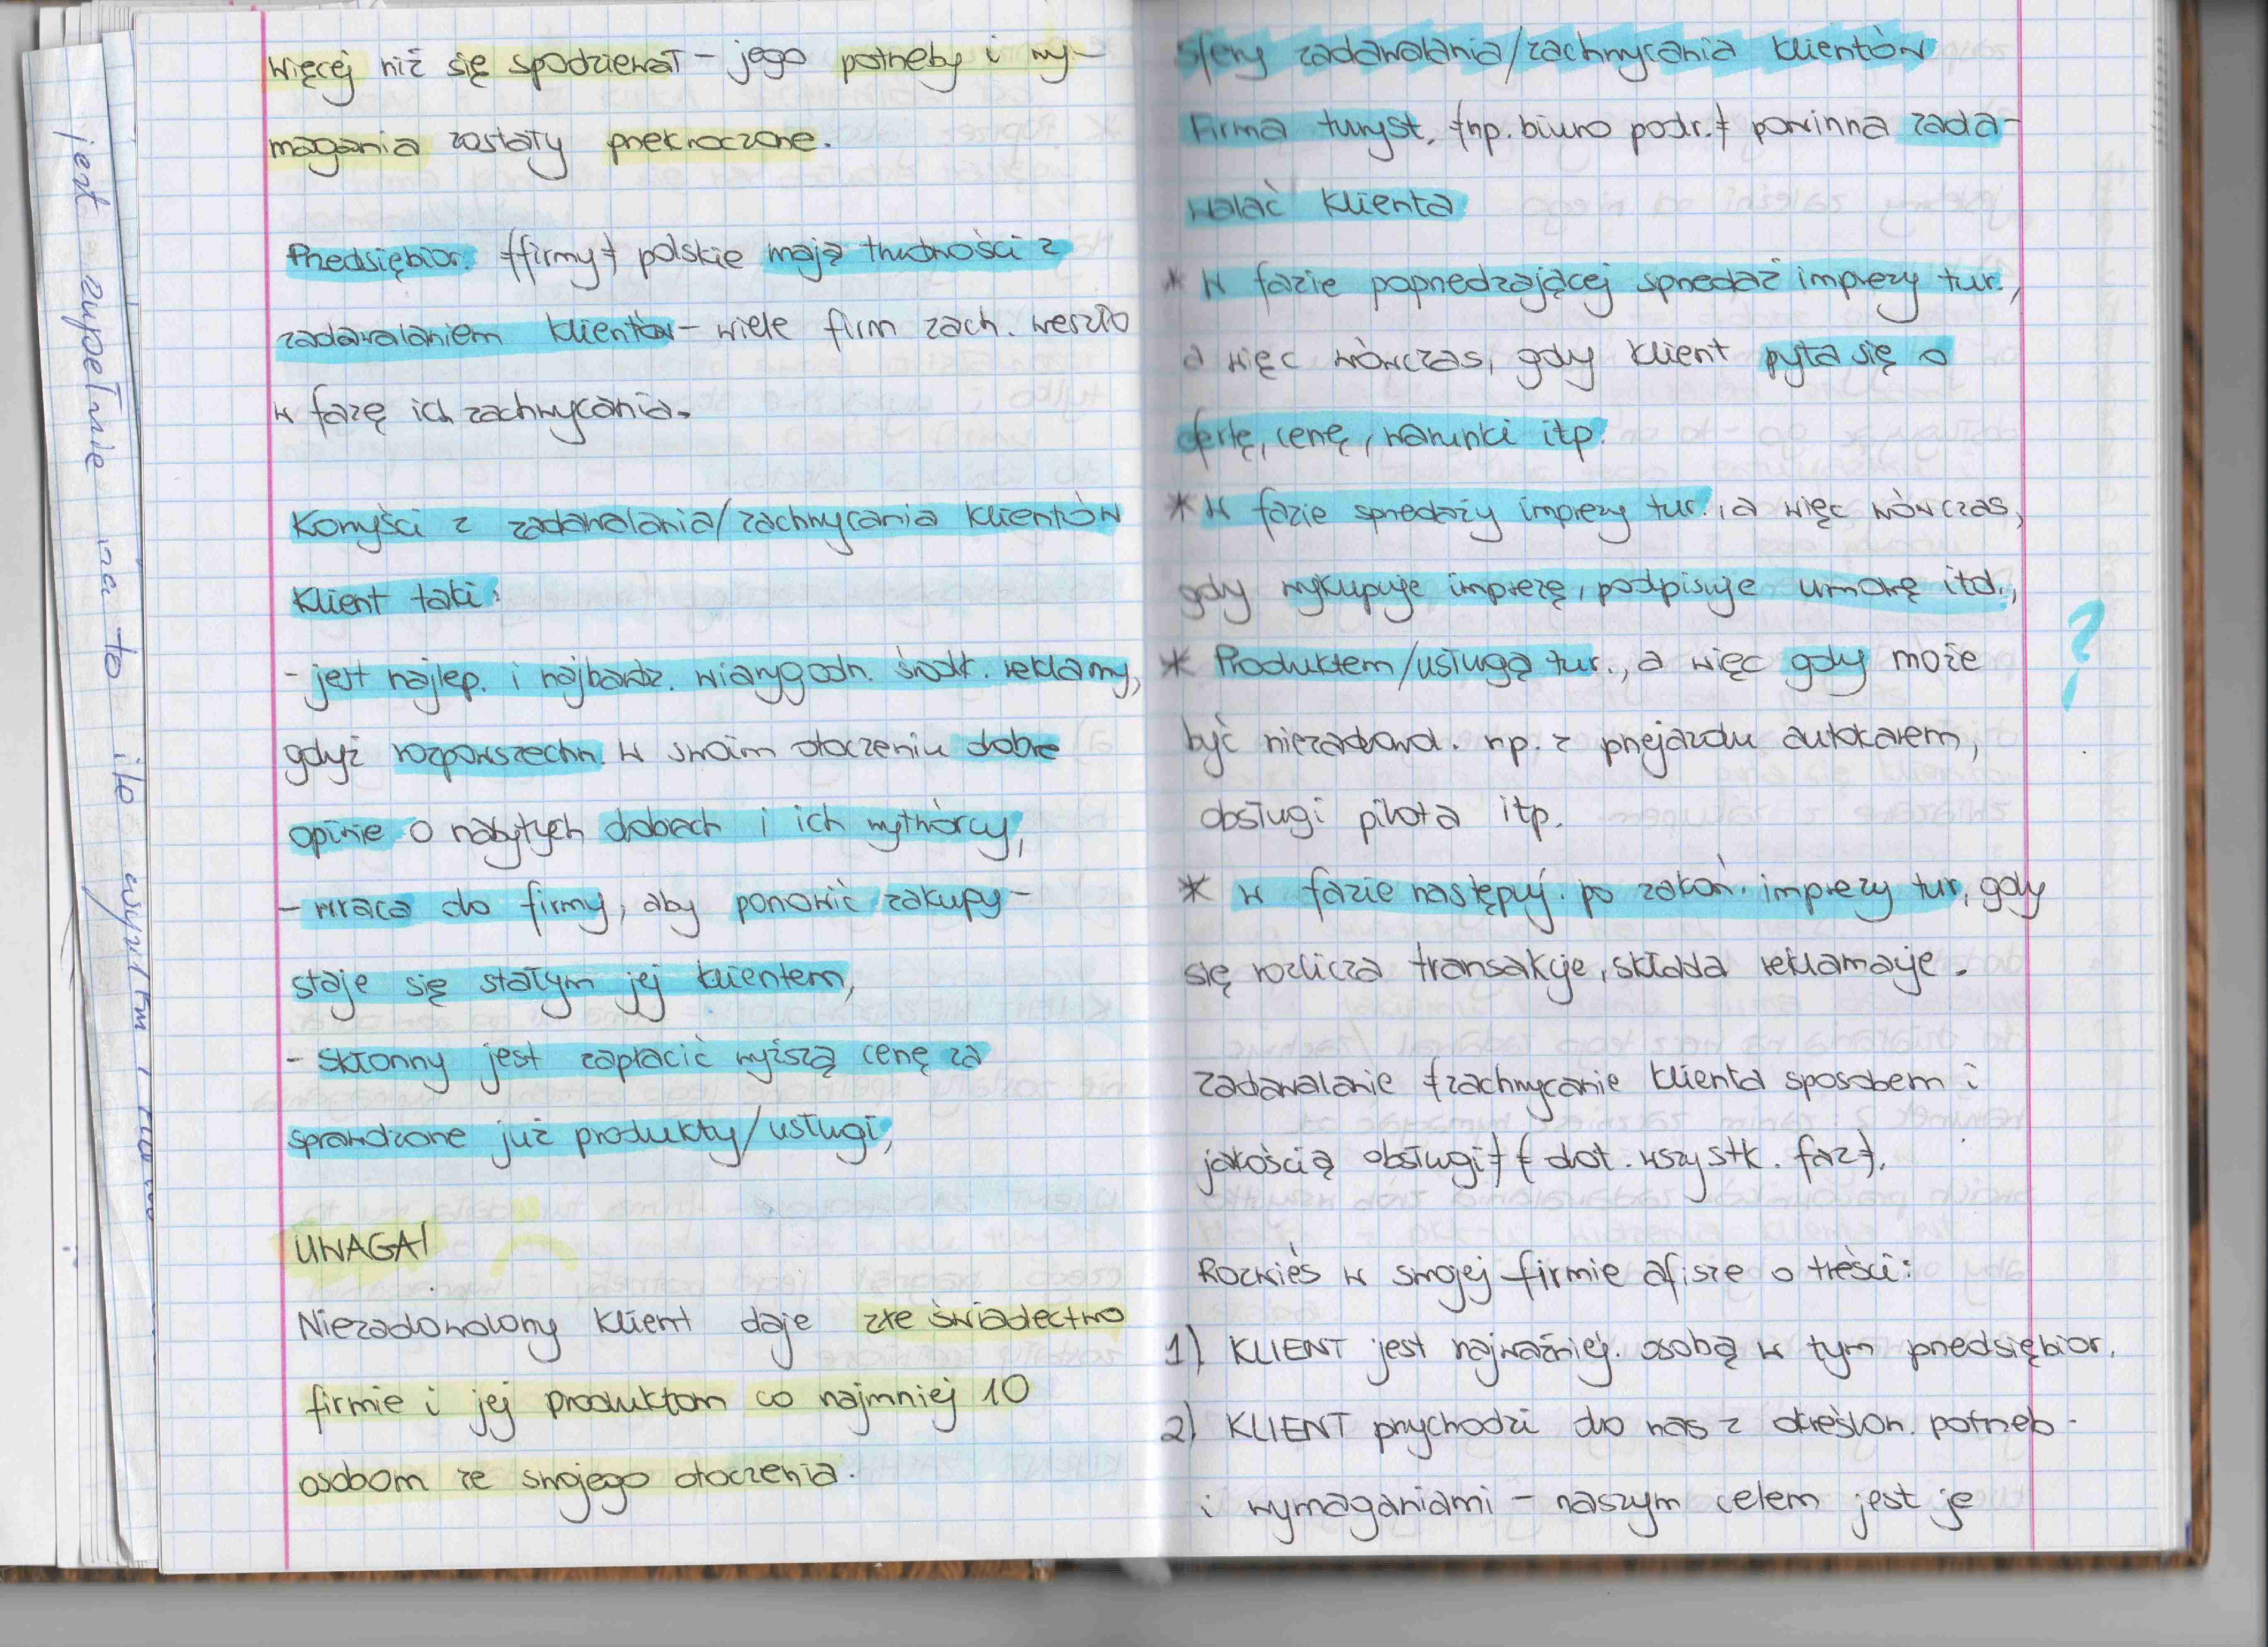 więcej niż się spodziewał – jego potrzeby i wy-
magania zostały przekroczone.
Przedsiębior. (firmy) polskie mają trudności z
zadawalaniem klientów – wiele firm zach. weszło
w fazę ich zachwycania.
Korzyści z zadawalania/zachwycania klientów
Klient taki:
- jest najlep. i najbardz. wiarygodn. środk. reklamy,
gdyż rozpowszechn. w swoim otoczeniu dobre
opinie o nabytych dobrach i ich wytwórcy,
- wraca do firmy, aby ponowić zakupy –
staje się stałym jej klientem,
- skłonny jest zapłacić wyższą cenę za
sprawdzone już produkty/usługi,
UWAGA!
Niezadowolony klient daje złe świadectwo
firmie i jej produktom co najmniej 10
osobom ze swojego otoczenia.
Sfery zadawalania/zachwycania klientów
Firma turyst. (np. biuro podr.) powinna zada-
walać klienta
* w fazie poprzedzającej sprzedaż imprezy tur.,
a więc wówczas, gdy klient pyta się o
ofertę, cenę, warunki itp.
* w fazie sprzedaży imprezy tur., a więc wówczas,
gdy wykupuje imprezę, podpisuje umowę itd.,
?
* Produktem/usługą tur., a więc gdy może
być niezadowol. np. z przejazdu autokarem,
obsługi pilota itp.
* w fazie następuj. po zakoń. imprezy tur, gdy
się rozlicza transakcje, składa reklamacje.
zadawalanie (zachwycanie klienta sposobem i
jakością obsługi) (dot. wszystk. faz).
Rozwieś w swojej firmie afisze o treści:
1) KLIENT jest najważniej. osobą w tym przedsiębior.
2) KLIENT przychodzi do nas z określon. potrzeb.
i wymaganiami – naszym celem jest je
jest zupełnie na to ile